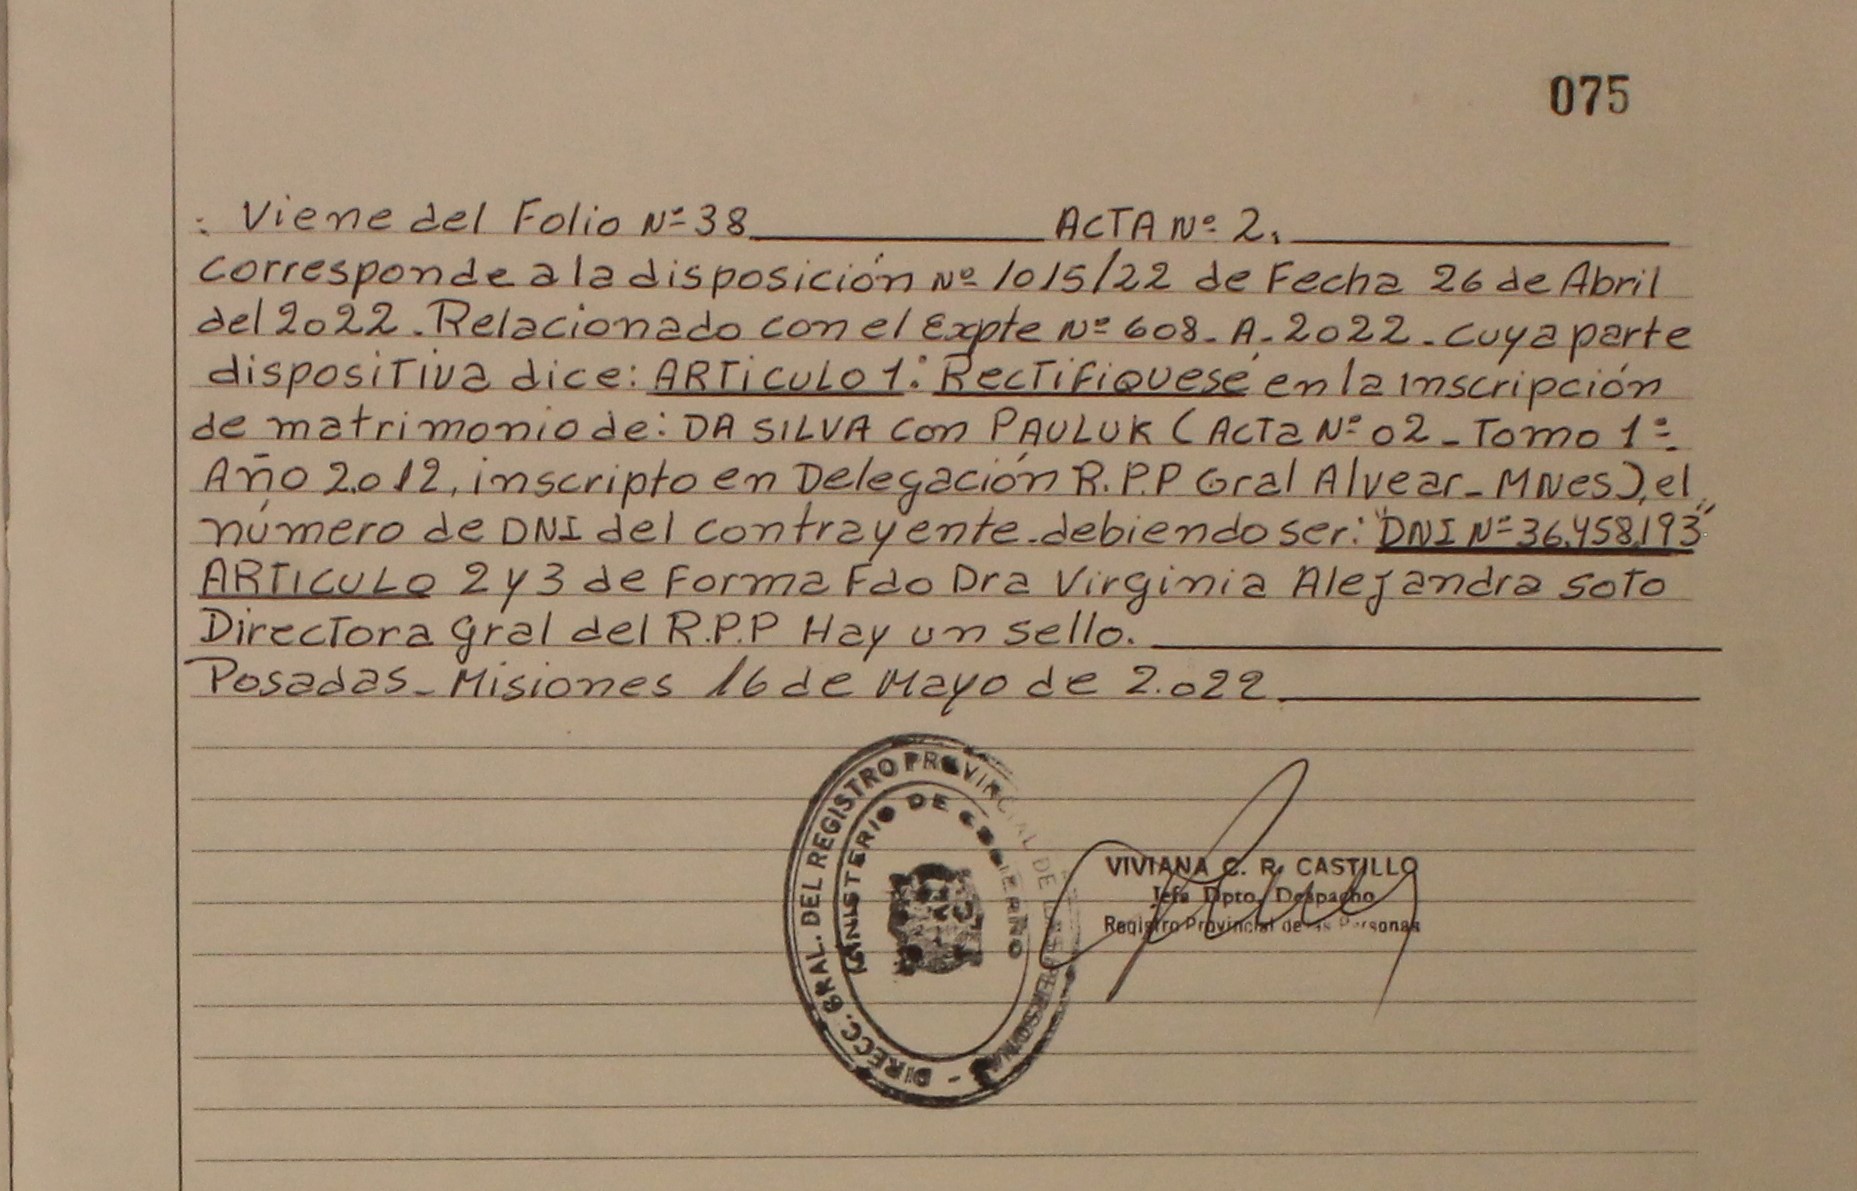 075
: Viene del Folio Nº 38 ACTA Nº 2.
corresponde a la disposición Nº 1015/22 de Fecha 26 de Abril
del 2022. Relacionado con el Expte Nº 608-A-2022. cuya parte
dispositiva dice: ARTICULO 1: Rectifiquese en la inscripción
de matrimonio de: DA SILVA con PAULUK (Acta Nº 02 - Tomo 1º
Año 2.012, inscripto en Delegación R.P.P Gral Alvear - MNes), el
número de DNI del contrayente. debiendo ser: "DNI Nº 36.458.193"
ARTICULO 2 y 3 de Forma Fdo Dra Virginia Alejandra Soto
Directora Gral del R.P.P Hay un sello.
Posadas - Misiones 16 de Mayo de 2.022
DIRECC. GRAL. DEL REGISTRO PROVINCIAL DE LAS PERSONAS -
MINISTERIO DE GOBIERNO
VIVIANA C. R. CASTILLO
Jefa Dpto. Despacho
Registro Provincial de las Personas